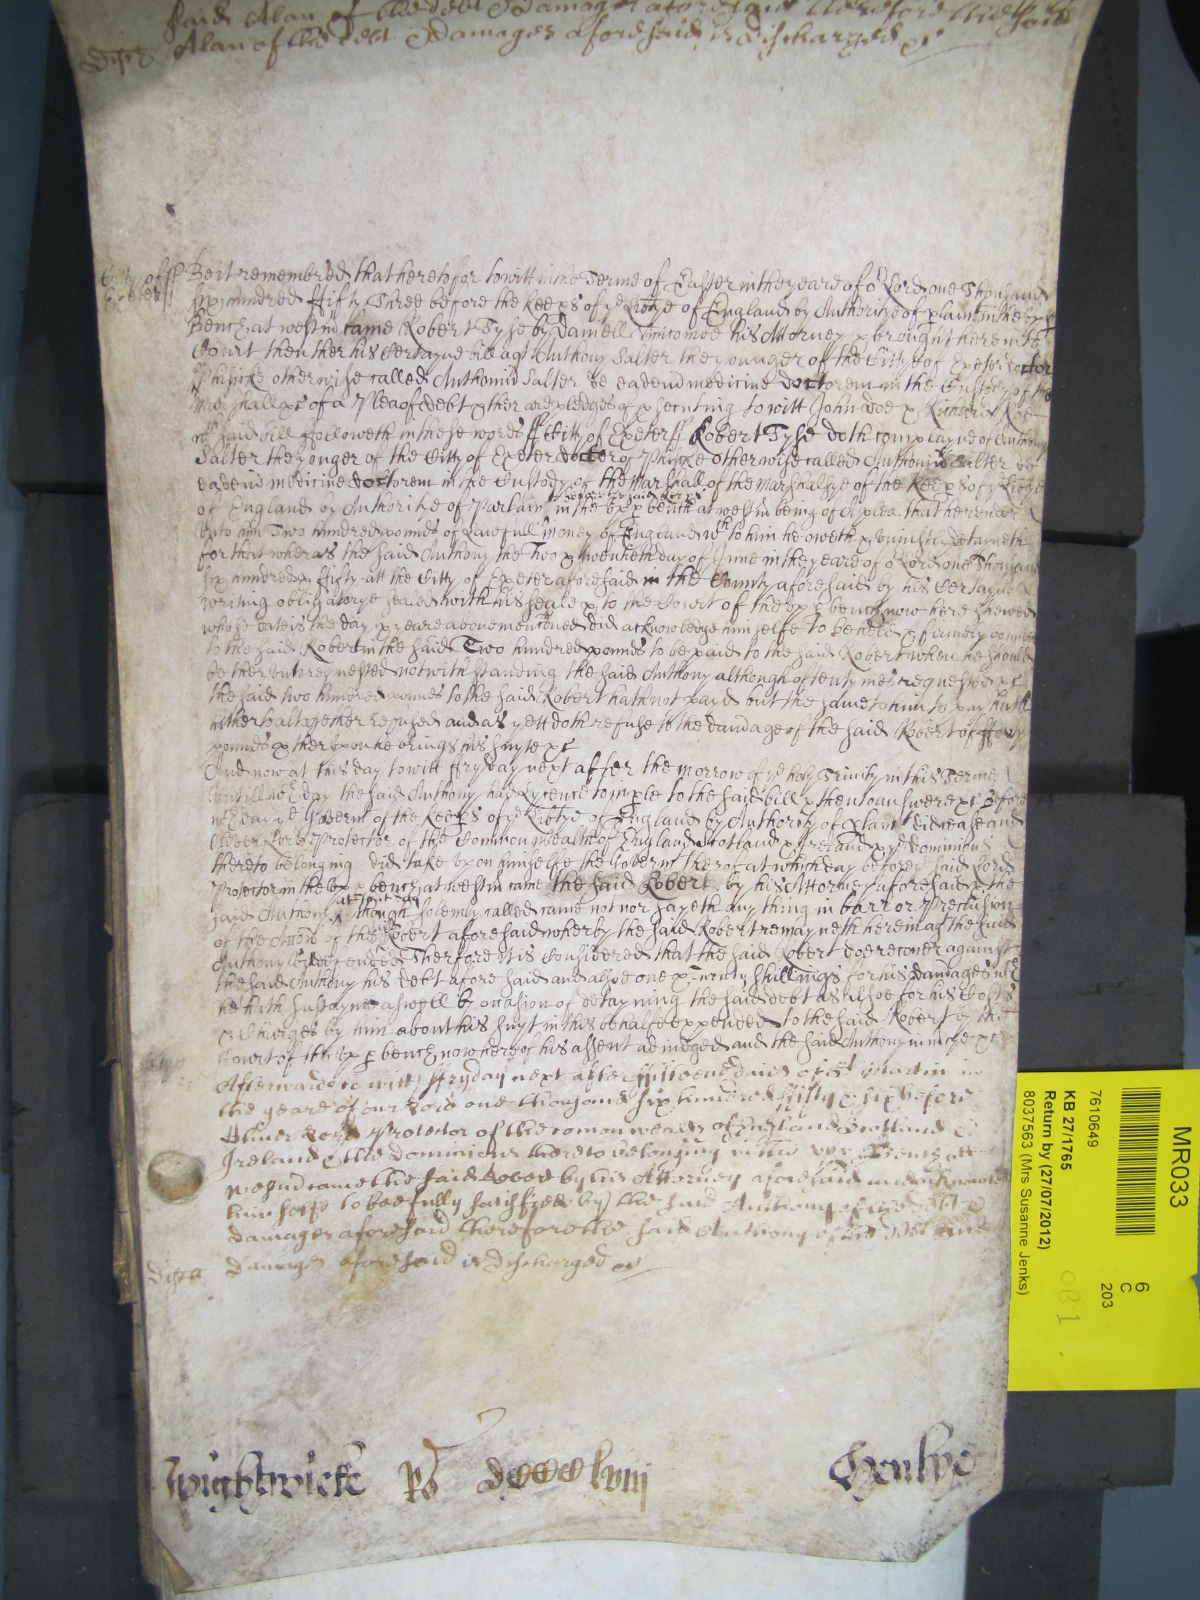 said Alan of the debt & damages aforesaid therefore the said
disch Alan of the debt & damages aforesaid is discharged &c
Citty of ff Be it remembred that heretofor to witt in the Terme of Easter in the yeare of o Lord one Thousand
Exeter ff six hundred ffifty Three before the Keeps of ye Libtye of England by Authoritye of plaint in the upp
bench at westm came Robert Tyse by Daniell his Attorney & brought here into
Court then ther his Certayne bill agt Anthony Salter the younger of the Citty of Exeter doctor
Phisicke otherwise called Anthonio Salter de eadem medicine doctorem in the Custody of the
Marshall &c of a Plea of debt & ther are pledges of psecuting to witt John doe & Richard Roe
wch said bill followeth in these words ff Citty of Exeter ff Robert Tyse doth complayne of Anthony
Salter the yonger of the Citty of Exeter docter of Phisicke otherwise called Anthonio Salter de
eadem medicine doctorem in the Custody of the Marshall of the Marshalsye of the Keeps of ye Libtye
of England by Authoritye of Parlamt in the upp bench at westm being of A plea that he render
unto him Two hundred pounds of Lawfull money of England wch to him he oweth & uniustly detayneth
for that wheras the said Anthony the Two & twentieth day of June in the yeare of o Lord one Thousand
six hundred & ffifty att the Citty of Exeter aforesaid in the County aforesaid by his Certayne
writing obligatorye sealed with his seale & to the Court of the upp bench now here shewed
whose date is the day & yeare abovementioned did acknowledge himselfe to be held & firmely bound
to the said Robert in the said Two hundred pounds to be paid to the said Robert when he should
be therunto requested notwithstanding the said Anthony although oftentymes requested &c
the said two hundred pounds to the said Robert hath not payd but the same to him to pay hath
hitherto altogether refused and as yett doth refuse to the damage of the said Robert of fforty
pounds & therupon he brings his suyte &c
And now at this day to witt ffryday next after the morrow of ye holy Trinity in this Terme
untill wch day the said Anthony had Lycence to imple to the said bill & then to answere &c Before
wch day ye Governt of the Keeps of ye Libtye of England by Authority of plamt did cease and
Oliver Lord Protector of the Common wealth of England Scotland & Ireland & ye dominions
thereto belonging did take upon himselfe the Governt therof at which day before ye said Lord
Protector in the upp bench at westm came the said Robert by his Attorney aforesaid & the
said Anthony although solemly called came not nor sayeth any thing in barr or Preclusion
of the Accon of the said Robert aforesaid wherby the said Robert remayneth herein agt the said
Anthony undefended Therefore it is Considered that the said Robert doe recover against
the said Anthony his debt afore said and alsoe one & twenty shillings for his damages wch
he hath sustayned aswell by occasion of detayning the said debt as alsoe for his Costs
& Charges by him about his suyt in this behalfe expended to the said Robert by the
Court of the upp bench now here of his assent adiudged and the said Anthony in mcye &c
Afterwards to witt ffryday next after ffifteene daies of St Martin in
the yeare of our Lord one thousand six hundred ffifty & six before
Oliver Lord Protector of the comonwealth of England Scotland &
Ireland & the dominions thereto belonging in the upp Bench att
westm came the said Robert by his Attorney aforesaid and acknow
himselfe to bee fully satisfied by the said Anthony of the debt &
damages aforesaid therefore the said Anthony of the debt and
disch damages aforesaid is discharged &c
Wightwicke Ro dcccclviij Henlye
MR033
7610649
KB 27/1765
Return by (27/07/2012)
8037563 (Mrs Susanne Jenks)
6
C
203
OB 1